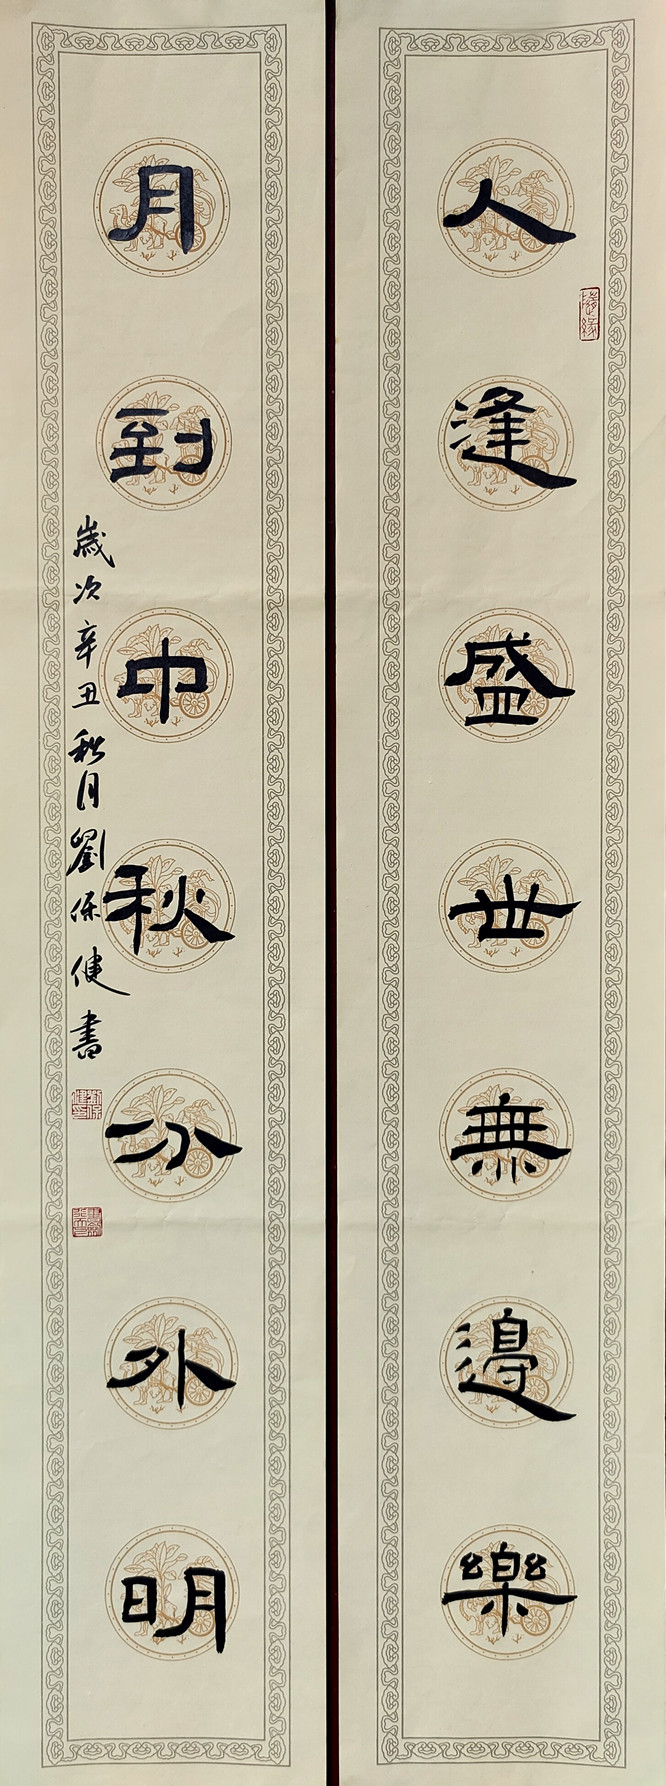 人逢盛世無邊樂
隨緣
月到中秋分外明
歲次辛丑秋月劉保健書